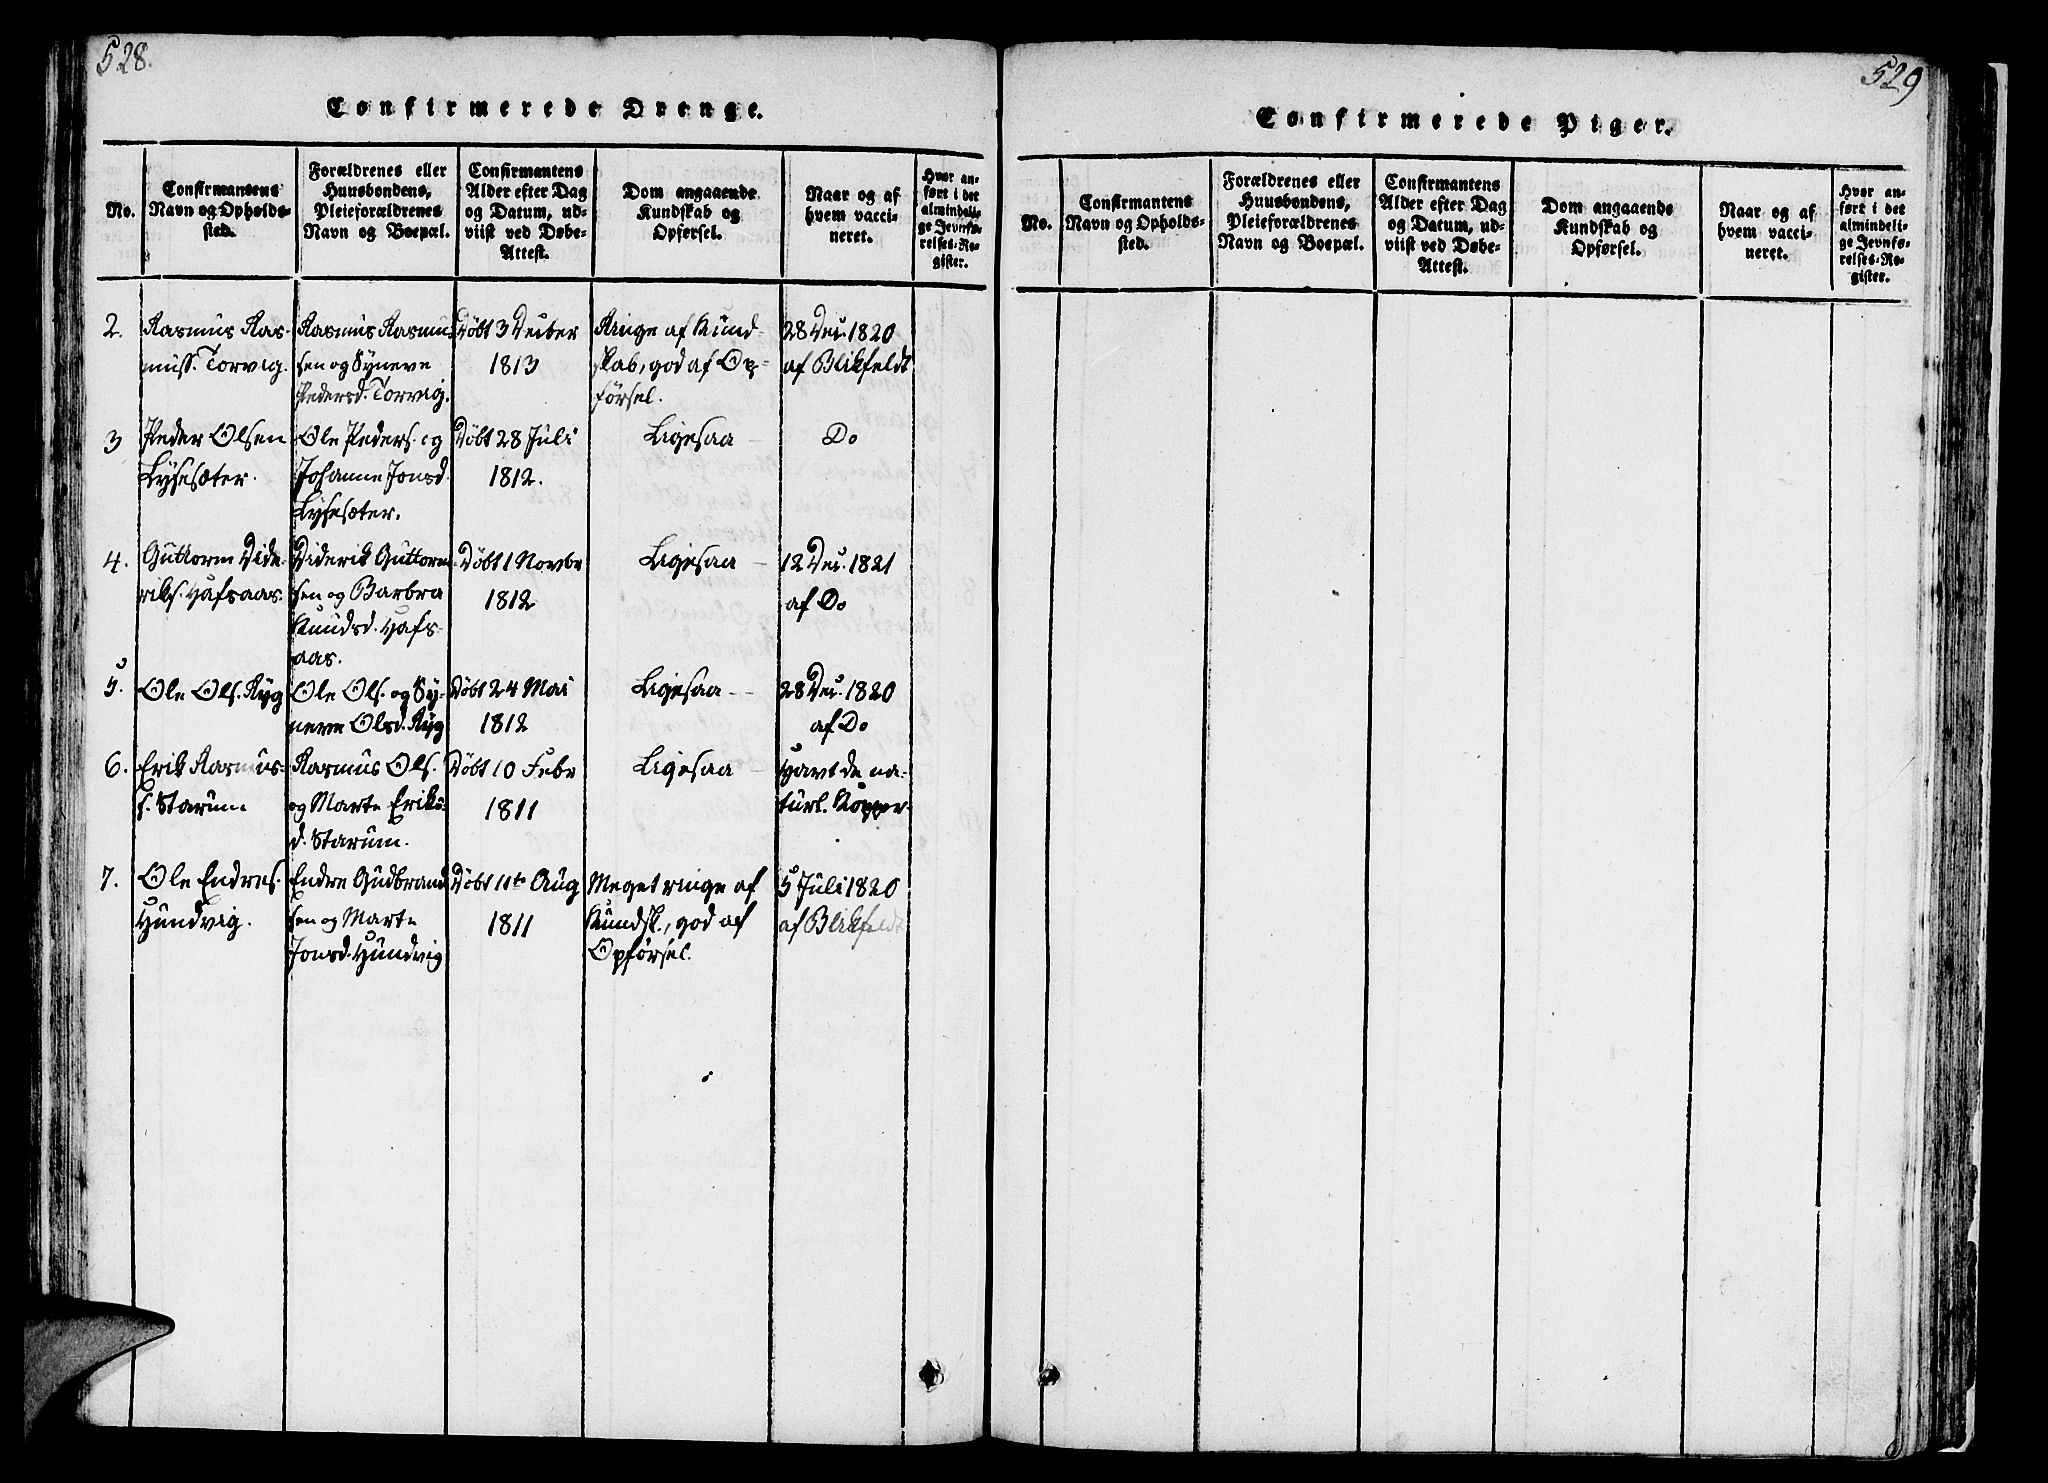 528.
Confirmerede Drenge.
No.
Confirmantens
Navn og Opholds-
sted.
Forældrenes eller
Huusbondens,
Pleieforældrenes
Navn og Boepæl.
Confirmantens
Alder efter Dag
og Datum, ud-
viist ved Døbe-
Attest.
Dom angaaende
Kundskab og
Opførsel.
Naar og af
hvem vacci-
neret.
Hvor an-
ført i det
almindeli-
ge Jevnfø-
relses-Re-
gister.
2.
Rasmus Ras-
muss. Torvig.
Rasmus Rasmus
sen og Syneve
Pedersd. Torvig.
Døbt 3 Decber
1813
Ringe af Kund-
skab, god af Op-
førsel.
28 Dec. 1820
af Blikfeldt
3
Peder Olsen
Lysesæter.
Ole Peders. og
Johanne Jonsd.
Lysesæter.
Døbt 28 Juli
1812.
Ligesaa
Do
4.
Guttorm Dide-
riks. Hafsaas.
Diderik Guttorm-
sen og Barbra
Knudsd. Hafs-
aas.
Døbt 1 Novbr
1812
Ligesaa
12 Dec. 1821
af Do
5.
Ole Ols. Ryg
Ole Ols. og Sy-
neve Olsd. Ryg
Døbt 24 Mai
1812
Ligesaa
28 Dec. 1820
af Do
6.
Erik Rasmus-
s. Starum
Rasmus Ols.
og Marte Eriks-
d. Starum.
Døbt 10 Febr
1811
Ligesaa
Havt de na-
turl. Kopper
7.
Ole Endres.
Hundvig.
Endre Gudbrand
sen og Marte
Jonsd. Hundvig
Døbt 11te Aug
1811
Meget ringe af
Kundsk., god af
Opførsel.
5 Juli 1820
af Blikfeldt
529
Confirmerede Piger.
No.
Confirmantens
Navn og Opholds-
sted.
Forældrenes eller
Huusbondens,
Pleieforældrenes
Navn og Boepæl.
Confirmantens
Alder efter Dag
og Datum, ud-
viist ved Døbe-
Attest.
Dom angaaende
Kundskab og
Opførsel.
Naar og af
hvem vacci-
neret.
Hvor an-
ført i det
almindeli-
ge Jevnfø-
relses-Re-
gister.